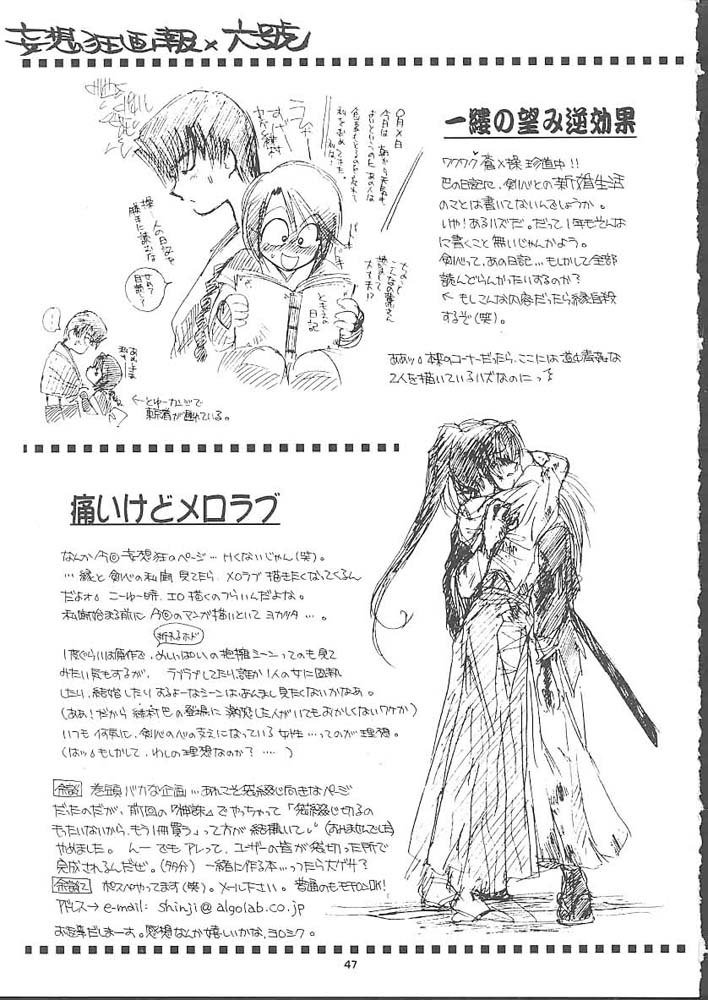 妄想狂画報×六號
一縷の望み逆効果
ワクワク蒼×操珍道中!!
巴の日記に、剣心との新婚生活
のことは書いてないんでしょうか。
いや!あるハズだ。だって1年もそんな
に書くこと無いじゃんかよう。
剣心って、あの日記…もしかして全部
読んどらんかったいするのか?
←もしこんな内容だったら縁自殺
するぞ(笑)。
ああッ。本来のコーナーだったら、ここには
2人を描いているハズなのにっ
○月×日
ともえの
日記
←とゆーカンジで
痛いけどメロラブ
なんか今回妄想狂のページ…Hくないじゃん(笑)。
…縁と剣心の私闘見てたら、メロラブ描きたくなってくるん
だよォ。こーゆー時、エロ描くのつらいんだよな。
私闘始まる前に今回のマンガ描いといてヨカッタ…。
折れるホド
1度ぐらいは原作で、めいっぱいの抱擁シーンってのも見て
みたい気もするが、ライラブしてたり誰か1人の女に固執
したり、結婚したりするよーなシーンはあんまし見たくないかなあ。
(ああ!だから雪代巴の登場に激怒した人がいてもおかしくないワケか)
いつも何気に、剣心の心の支えになっている女性…ってのが理想。
(はッ。もしかして、わしの理想なのか?……)
余談1 巻頭バカな企画…あれこそ袋綴じ向きなページ
だったのだが、前回の『 』でやっちゃって「袋綴じ切るの
もったいないから、もう1冊買う」って方が結構いて。(すみませんでした)
やめました。んーでもアレって、ユーザーの皆が袋切った所で
完成されるんだぜ。(多分) 一緒に作る本…ったら大ゲサ?
余談2 ポスペやってます(笑)。メール下さい。普通のもモチロンOK!
アドレス→e-mail: shinji@algolab.co.jp
お返事だしまーす。感想なんか嬉しいかな、ヨロシク。
47